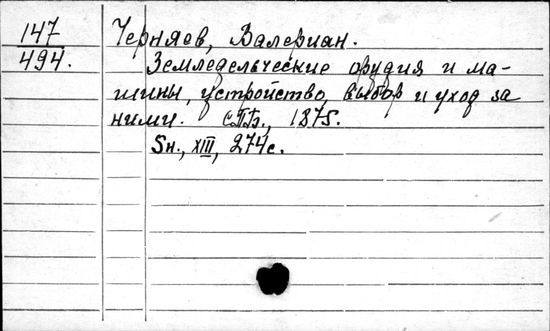 147 Черняев, Валериан.
494. Земледельческие орудия и ма-
шины, устройство, выбор и уход за
ними. СПб., 1875.
8н., XIII, 274с.